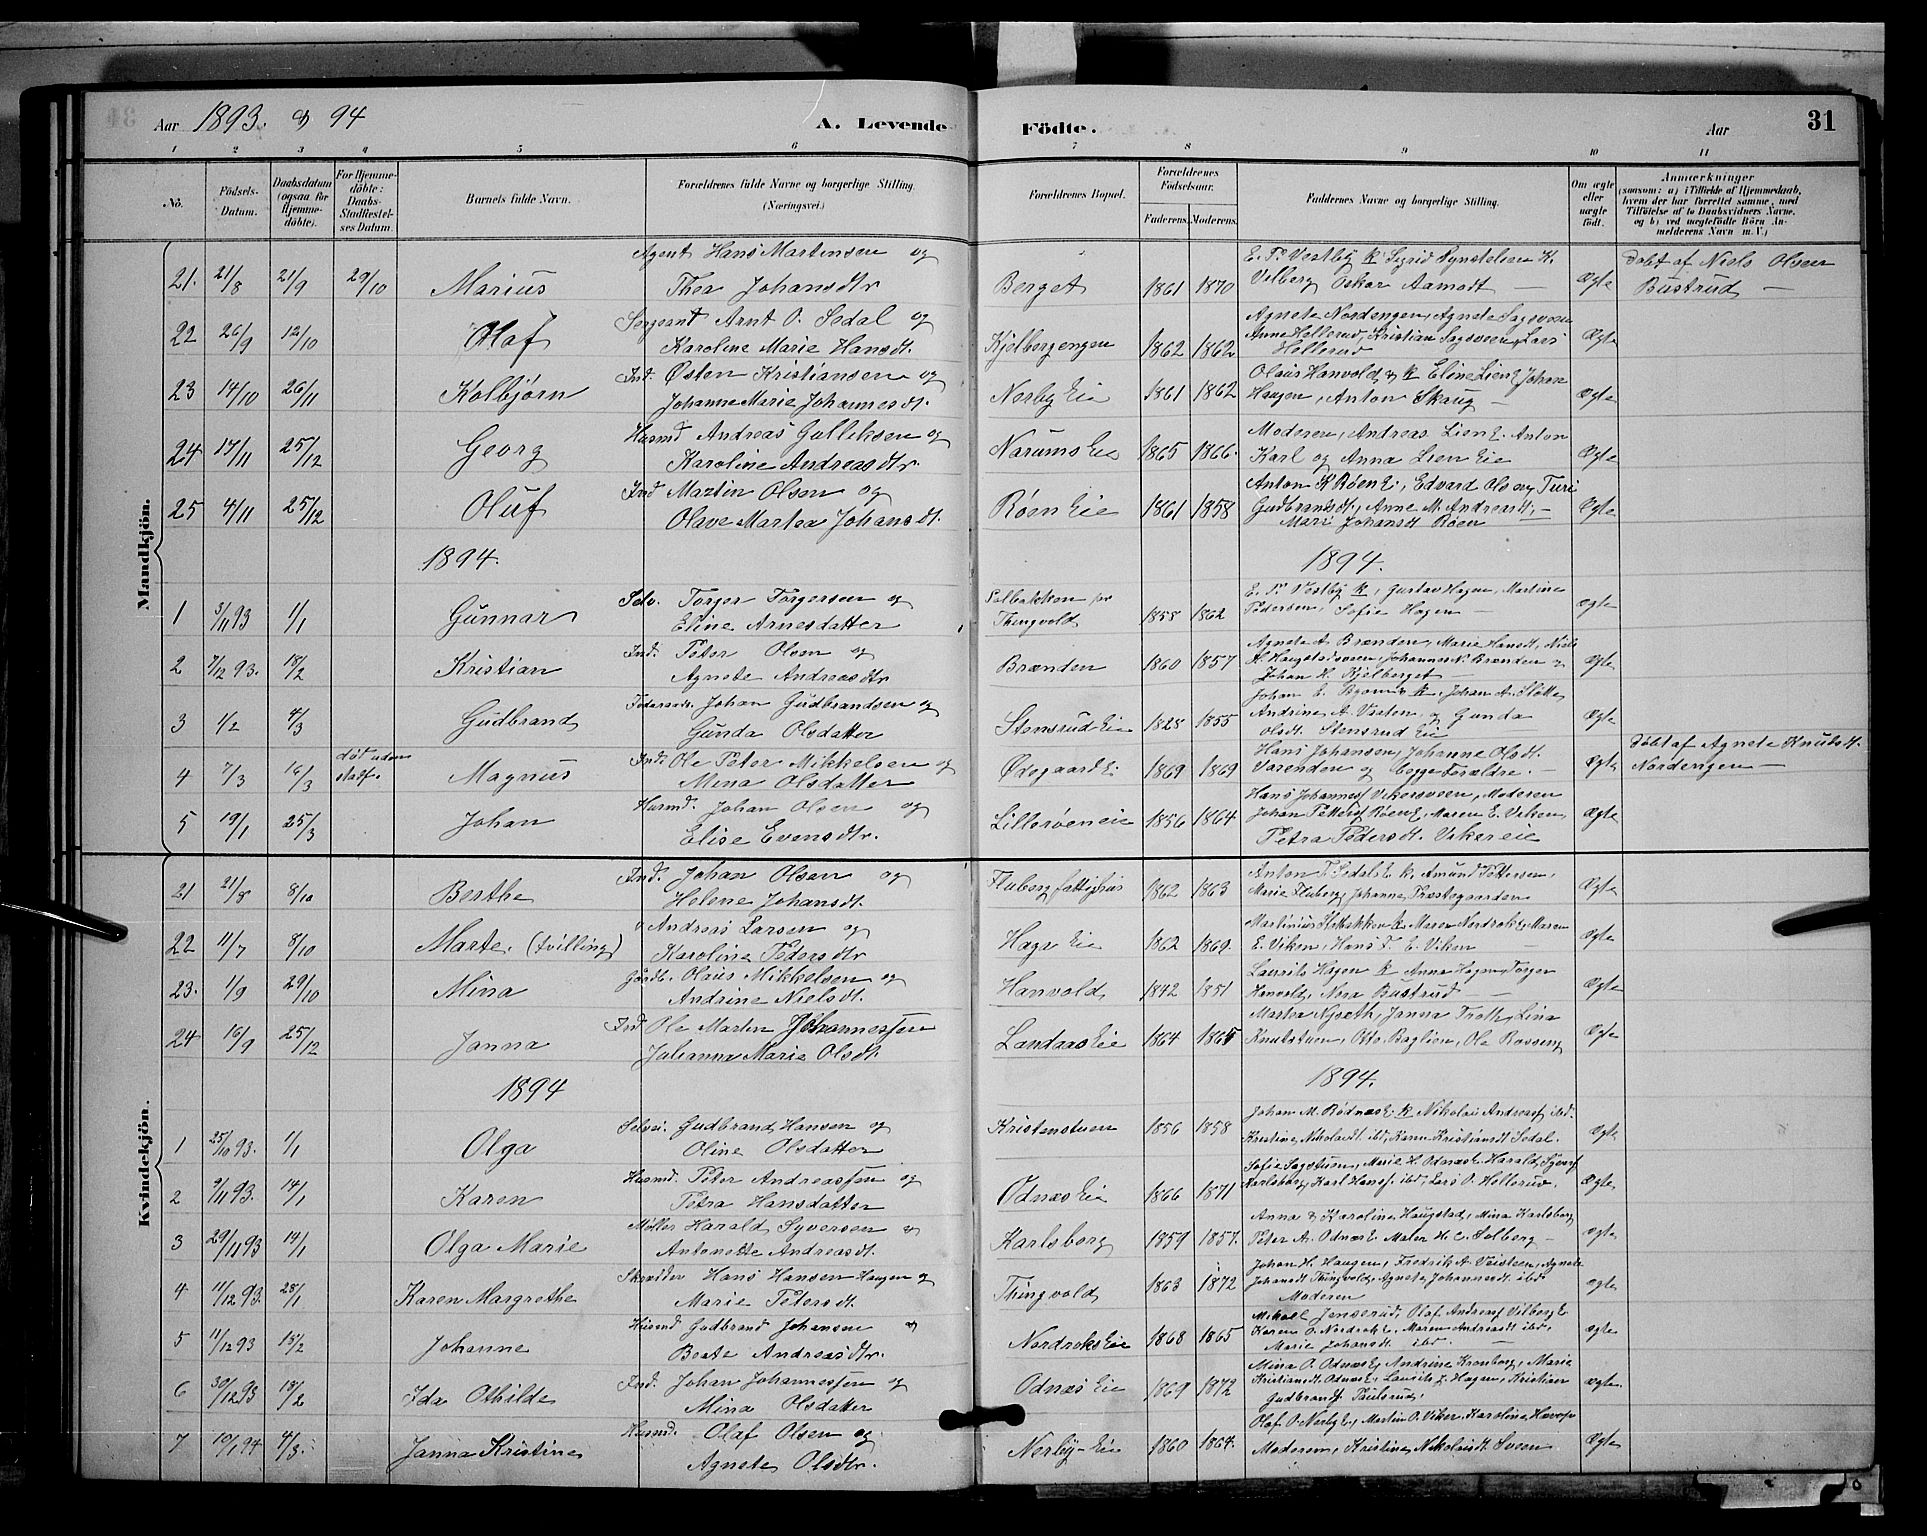 Aar 1893. & 94
A. Levende Födte.
Aar
31
1 2 3 4 5 6 7 8 9 10 11
No.
Födsels-Datum.
Daabsdatum (ogsaa for Hjemmedöbte).
For Hjemmedöbte: Daabs-Stadfæstelses Datum.
Barnets fulde Navn.
Forældrenes fulde Navne og borgerlige Stilling. (Næringsvei.)
Forældrenes Bopæl.
Forældrenes Födselsaar.
Faderens. Moderens.
Faddernes Navne og borgerlige Stilling.
Om ægte eller uægte födt.
Anmærkninger
(saasom: a) i Tilfælde af Hjemmedaab, hvem der har forrettet samme, med Tilföielse af to Daabsvidners Navne, og b) ved uægtefödte Börn Anmelderens Navn m. V.)
Mandkjön.
21. 21/8 21/9 29/10 Marius Agent Hans Martensen og Thea Johansdtr Berget 1861 1870 E. P. Vestby K Sigrid K. Velberg Oskar Aamodt Ægte Döbt af Niels Olsen Bustrud
22 26/9 12/10 Olaf Sergeant Arnt O. Sedal og Karoline Marie Hansdt. Kjelbergengen 1862 1862 Agnete Nordengen, Agnete Sagsveen Anne Hollerud, Kristian Sagsveen, Lars Hollerud Ægte
23 14/10 26/11 Kolbjørn Ind. Østen Kristiansen og Johanne Marie Johannesdt. Nerby Eie 1861 1862 Olaus Hanvold & K Eline Lien E Johan Haugen, Anton Skaug Ægte
24 17/11 25/12 Georg Husmd Andreas Gulliksen og Karoline Andreasdtr. Narums Eie 1865 1866. Moderen, Andreas Lien E. Anton Karl og Anna Lien Eie Ægte
25 4/11 25/12 Oluf Ind Martin Olsen og Olave Martea Johansdt. Røen Eie 1861 1858 Anton K Røen E., Edvard Olsen, Turi Gudbrandsdt., Anne M. Andreasdt., Mari Johansdt Røen Ægte
1894. 1894.
1 3/11 93 1/1 Gunnar Selv. Torger Torgersen og Eline Arnesdatter Solbakken pr Thingvold 1858 1862 E. P. Vestby K, Gustav Hagen, Martine Pedersen, Sofie Hagen Ægte
2 7/12 93. 18/2 Kristian Ind. Peter Olsen og Agnete Andreasdtr Brænden 1860 1857 Agnete A. Brænden, Marie Hansdt, Niels H. Johannes N. Brænden Johan H. Kjelberget Ægte
3 1/2 4/3 Gudbrand Johan Gudbrandsen og Gunda Olsdatter Stensrud Eie 1828 1855 Johan E. K, Johan A. Slette Andrine A. og Gunda Olsdt. Stensrud Eie Ægte
4 7/3 16/3 död uden stadf. Magnus Ind: Ole Peter Mikkelsen og Mina Olsdatter Ødegaard E. 1869 1869 Hans Johansen, Johanne Olsdt. Varenden og begge Forældre. Ægte Döbt af Agnete Knutsdt. Nordengen
5 19/1 25/3 Johan Husmd. Johan Olsen og Elise Evensdtr. Lillerøen eie 1856 1864 Hans Johannesf Vikersveen, Moderen Johan Pettersf Røen E, Maren E. Viken, Petra Pedersdt. Viker eie Ægte
Kvindekjön.
21 21/8 8/10 Berthe Ind. Johan Olsen og Helene Johansdt. Fluberg fattighus 1862 1863 Anton P. Sedals E K, Amund Pettersen, Marie Fluberg, Johanne Præstegaarden Ægte
22 11/7 8/10 Marte. (tvilling) Andreas Larsen og Karoline Pedersdtr Hage Eie 1862 1869. Martinius K Maren Nordrok E. Maren E. Viken, Hans E. Viken Ægte
23. 1/9 29/10 Mina Gårdb. Olaus Mikkelsen og Andrine Nielsdt. Hanvold 1842 1851 Laurits Hagen K Anna Hagen, Torger Hanvold, Nora Bustrud Ægte
24 16/9 25/12 Janna Ind Ole Marten Johannessen Julianna Marie Olsdt. Landaas Eie 1864 1865 Martea, Janna, Lina Knutstuen, Otto Baglien, Ole Rosseng Ægte
1894 1894.
1 25/10 93. 1/1 Olga Selvei. Gudbrand Hansen og Oline Olsdatter Kristenstuen 1856 1858 Johan M. Rødnæs E. K Nikolai Andreasf ibd. Kristine Nikolaidt ibd, Karen Kristiansdt Sedal. Ægte
2 9/11 93. 14/1 Karen Husmd. Peter Andreassen og Petra Hansdatter Odnæs Eie 1866 1871 Sofie Sagstuen, Marie H. Odnæs E. Harald Syversf Karlsborg, Karl Hansf. ibd, Lars O. Hollerud. Ægte
3 29/11 93 14/1 Olga Marie Møller Harald Syversen & Antonette Andreasdt. Karlsborg 1859 1857. Anna & Karoline Haugstad, Mina Karlsborg Peter A. Odnæs E. Maler H. C. Solberg Ægte
4 11/12 93. 28/1 Karen Margrethe Skrædder Hans Hansen Haugen og Marie Petersdt. Thingvold 1863 1872 Johan H. Haugen, Fredrik A. Veisteen, Agnete Johansdt Thingvold, Agnete Johannesdt ibd Moderen Ægte
5 11/12 93 15/2 Johanne Husmd. Gudbrand Johansen & Beate Andreasdtr. Nordroks Eie 1868 1865 Mikael Jenserud, Olaf Andreasf Vilberg E. Karen O. Nordrok E. Maren Andreasdt ibd, Marie Johansdt ibd. Ægte
6 30/12 93 18/2 Ida Othilde Ind. Johan Johannessen og Mina Olsdatter Odnæs Eie 1869 1872 Mina O. Odnæs E, Andrine Kronborg, Marie Kristiansdt Odnæs E, Laurits J. Hagen, Kristian Gudbrandsf. Paulsrud, Ægte
7 10/1 94 4/3. Janna Kristine Husmd. Olaf Olsen og Agnete Olsdtr. Nerby-Eie 1860 1864. Olaf O. Nerby E, Martin O. Viker, Karoline Moderen, Kristine Nikolaidt Sveen. Ægte